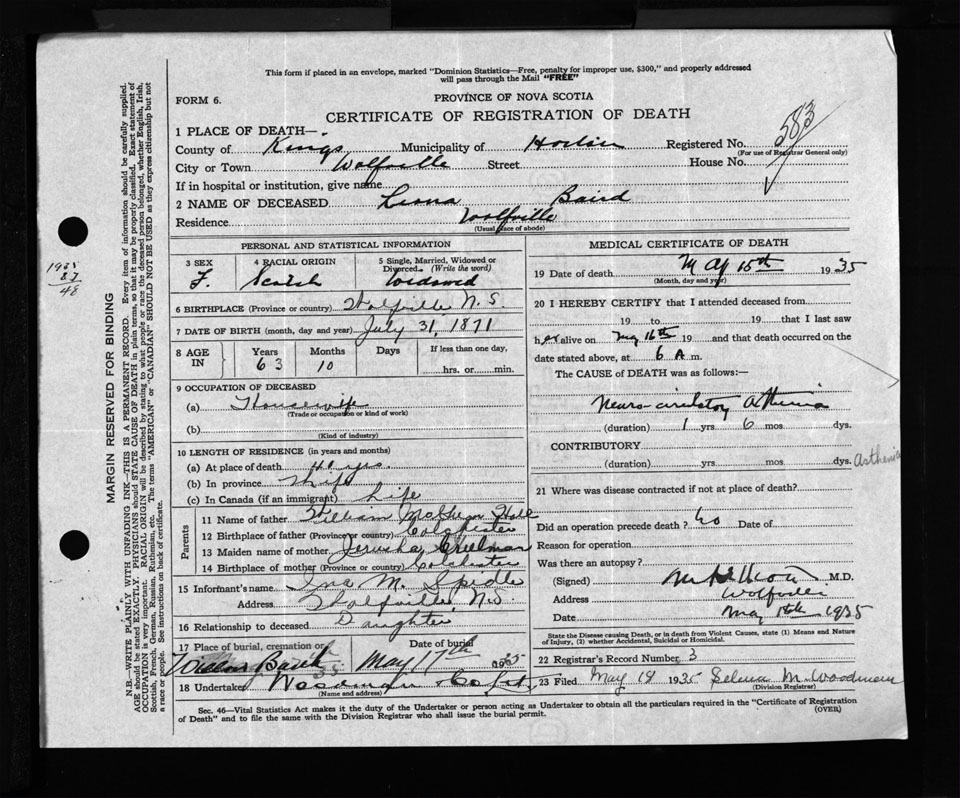 This form if placed in an envelope, marked "Dominion Statistics—Free, penalty for improper use, $300," and properly addressed
will pass through the Mail "FREE"
FORM 6.
PROVINCE OF NOVA SCOTIA
CERTIFICATE OF REGISTRATION OF DEATH
1 PLACE OF DEATH—
County of Kings Municipality of Horton Registered No. 583
(For use of Registrar General only)
City or Town Wolfville Street House No.
If in hospital or institution, give name
2 NAME OF DECEASED Leona Baird
Residence Wolfville
(Usual place of abode)
PERSONAL AND STATISTICAL INFORMATION
3 SEX 4 RACIAL ORIGIN 5 Single, Married, Widowed or
Divorced. (Write the word)
F. Scotch Widowed
6 BIRTHPLACE (Province or country) Wolfville N.S.
7 DATE OF BIRTH (month, day and year) July 31, 1871
8 AGE IN Years Months Days If less than one day,
63 10 hrs. or min.
9 OCCUPATION OF DECEASED
(a) Housewife
(Trade or occupation or kind of work)
(b)
(Kind of industry)
10 LENGTH OF RESIDENCE (in years and months)
(a) At place of death yrs.
(b) In province Life
(c) In Canada (if an immigrant) Life
Parents
11 Name of father William
12 Birthplace of father (Province or country) Colchester
13 Maiden name of mother Jerusha Creelman
14 Birthplace of mother (Province or country) Colchester
15 Informant's name Ina M. Spidle
Address Wolfville, N.S.
16 Relationship to deceased Daughter
17 Place of burial, cremation or Date of burial
Willow Bank May 17th 1935
18 Undertaker Woodman
(Name and address)
MEDICAL CERTIFICATE OF DEATH
19 Date of death May 15th 1935
(Month, day and year)
20 I HEREBY CERTIFY that I attended deceased from
19 to 19 that I last saw
her alive on May 16th 19 and that death occurred on the
date stated above, at 6 A m.
The CAUSE of DEATH was as follows:—
Neuro circulatory asthenia
(duration) 1 yrs 6 mos dys.
CONTRIBUTORY
(duration) yrs mos dys. Asthenia
21 Where was disease contracted if not at place of death?
Did an operation precede death? No Date of
Reason for operation
Was there an autopsy?
(Signed) M.D.
Address Wolfville
Date May 1935
State the Disease causing Death, or in death from Violent Causes, state (1) Means and Nature
of Injury, (2) whether Accidental, Suicidal or Homicidal.
22 Registrar's Record Number 3
23 Filed May 18 1935 Selena M. Woodman
(Division Registrar)
Sec. 46—Vital Statistics Act makes it the duty of the Undertaker or person acting as Undertaker to obtain all the particulars required in the "Certificate of Registration
of Death" and to file the same with the Division Registrar who shall issue the burial permit.
(OVER)
MARGIN RESERVED FOR BINDING
N.B.—WRITE PLAINLY WITH UNFADING INK—THIS IS A PERMANENT RECORD. Every item of information should be carefully supplied.
AGE should be stated EXACTLY. PHYSICIANS should STATE CAUSE OF DEATH in plain terms, so that it may be properly classified. Exact statement of
OCCUPATION is very important. RACIAL ORIGIN will be described by stating to what people or race the deceased person belonged, whether English, Irish,
Scottish, French, German, Russian, Ruthenian, etc. The terms "AMERICAN" or "CANADIAN" SHOULD NOT BE USED as they express citizenship but not
a race or people. See instructions on back of certificate.